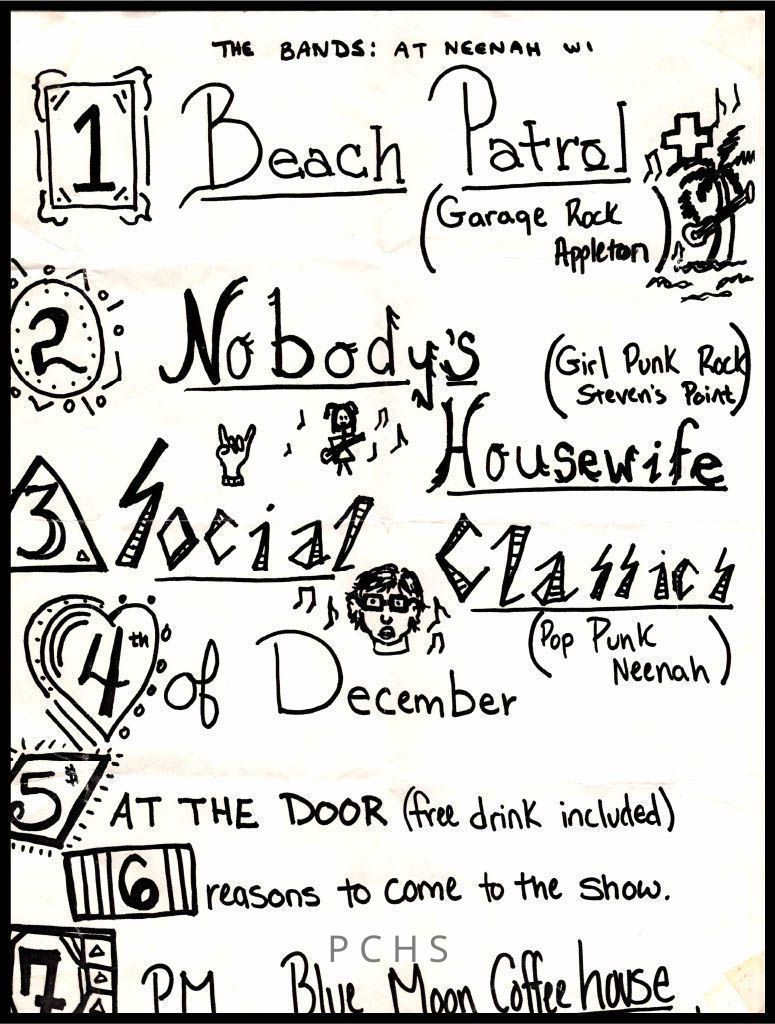 THE BANDS: AT NEENAH WI
1 Beach Patrol
(Garage Rock
Appleton)
2 Nobody's
(Girl Punk Rock
Steven's Point)
Housewife
3 Social Classics
(Pop Punk
Neenah)
4th of December
5$ AT THE DOOR (free drink included)
6 reasons to come to the show.
PCHS
7 PM Blue Moon Coffee house